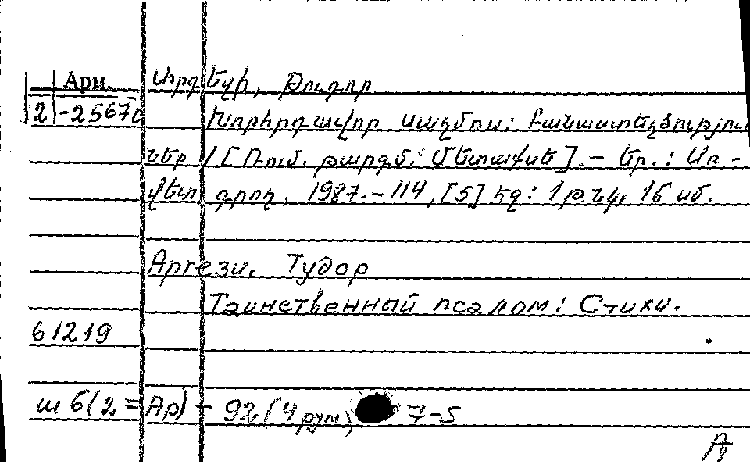 Арм. Արգեզի, Թուդոր
2 -25670 Խորհրդավոր սաղմոս: Բանաստեղծություն
ներ / [Ռում. թարգմ.: Մետաքսե]. – Եր.: Սո-
վետ. գրող, 1987. – 114, [5] էջ: 1 թ. նկ. 16 սմ.
Аргези, Тудор
Таинственный псалом: Стихи.
61219
ш 6(2=Ар) – 92 (4 рум) 7-5